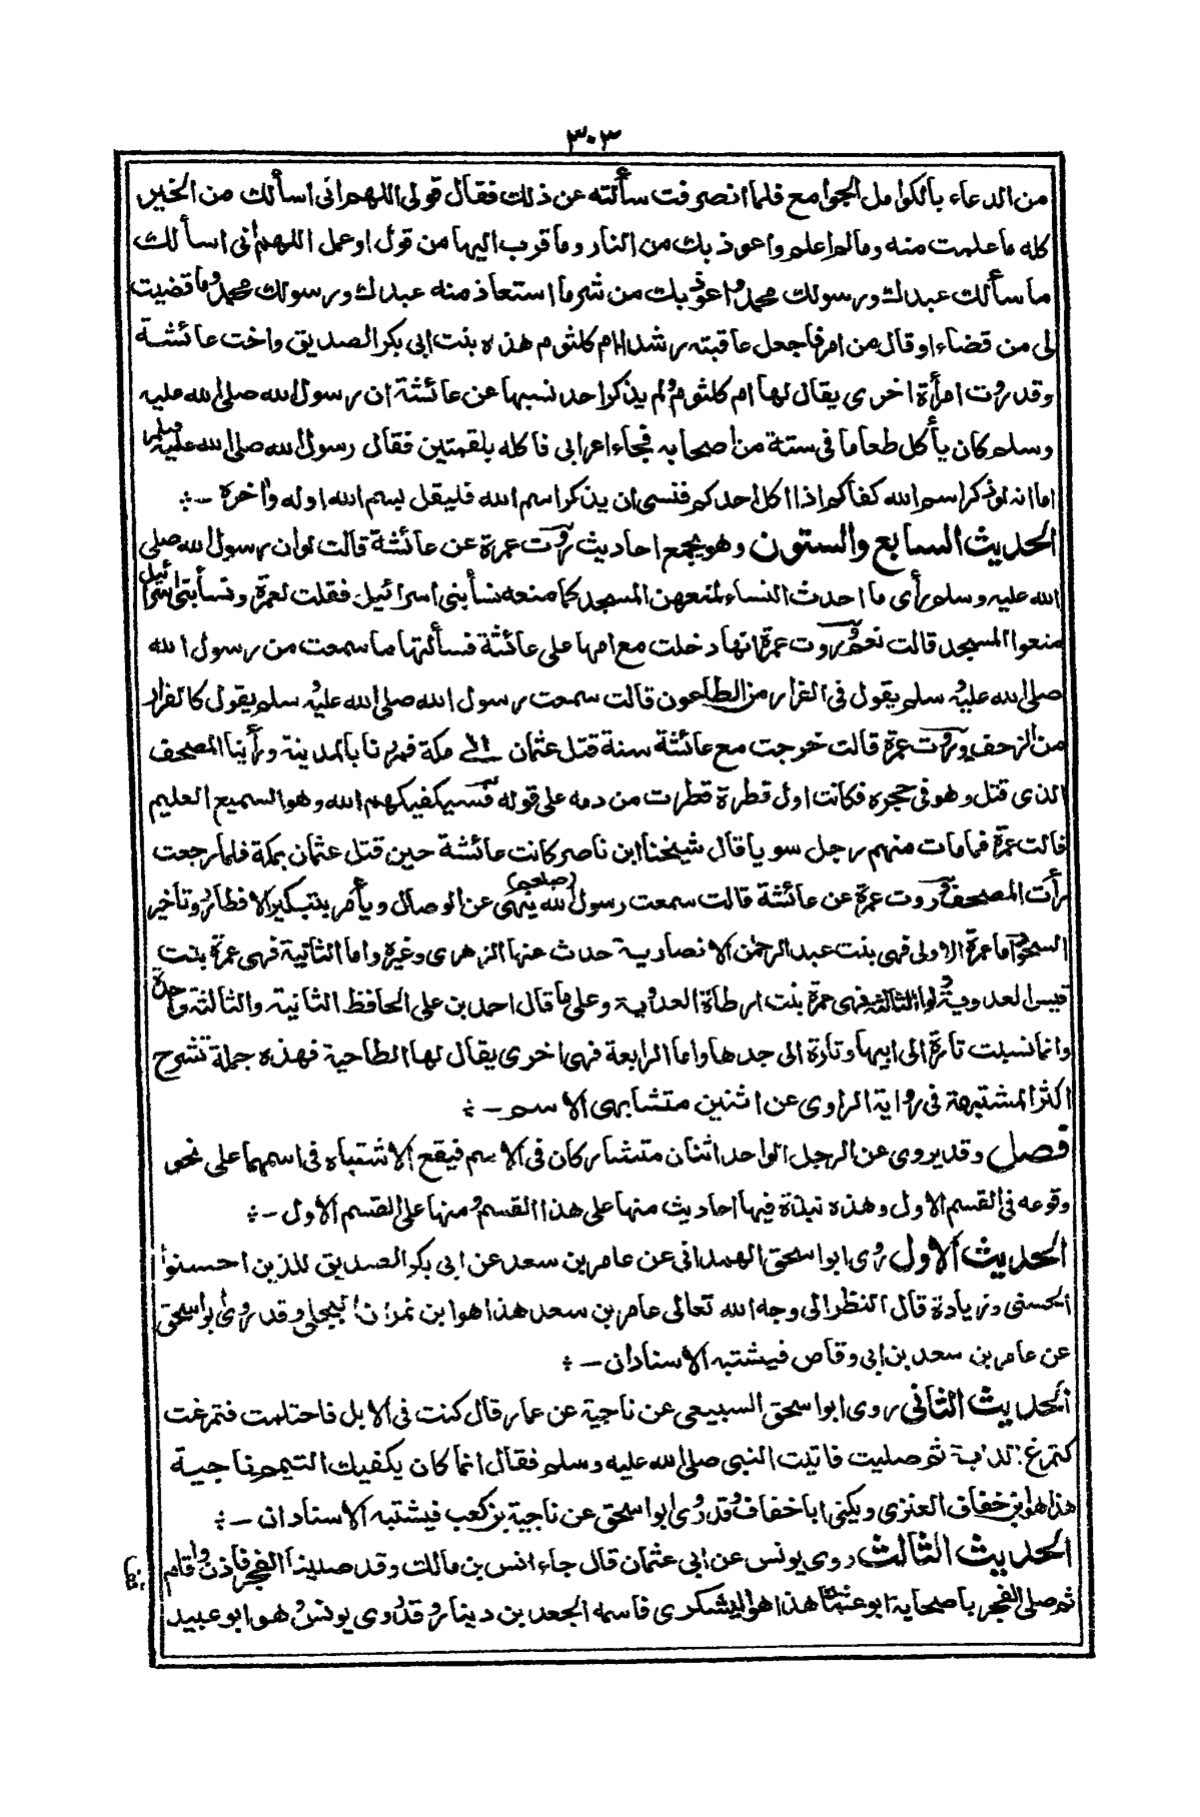 ٣٠٣
من الدعاء بالكوامل الجوامع فلما انصرفت سألته عن ذلك فقال قولى اللهم انى اسألك من الخير
كله ما علمت منه وما لم اعلم واعوذ بك من النار وما قرب اليها من قول او عمل اللهم انى اسألك
ما سألك عبدك ورسولك محمد واعوذ بك من شر ما استعاذ منه عبدك ورسولك محمد وما قضيت
لى من قضاء او قال من امر فاجعل عاقبته رشدا ام كلثوم هذه بنت ابى بكر الصديق واخت عائشة
وقد روت امرأة اخرى يقال لها ام كلثوم ولم يذكر احد نسبها عن عائشة ان رسول الله صلى الله عليه
وسلم كان يأكل طعاما فى ستة من اصحابه فجاء اعرابى فاكله بلقمتين فقال رسول الله صلى الله عليه وسلم
اما انه لو ذكر اسم الله كفاكم اذا اكل احدكم فنسى ان يذكر اسم الله فليقل بسم الله اوله واخره -
الحديث السابع والستون وهو يجمع احاديث روت عمرة عن عائشة قالت لو ان رسول الله صلى
الله عليه وسلم رأى ما احدث النساء لمنعهن المسجد كما منعه نسأ بنى اسرائيل فقلت لعمرة ونسأ بنى اسرائيل
منعوا المسجد قالت نعم وروت عمرة انها دخلت مع امها على عائشة فسألتها ما سمعت من رسول الله
صلى الله عليه وسلم يقول فى الفرار من الطاعون قالت سمعت رسول الله صلى الله عليه وسلم يقول كالفرار
من الزحف وروت عمرة قالت خرجت مع عائشة سنة قتل عثمان الى مكة فمررنا بالمدينة ورأينا المصحف
الذى قتل وهو فى حجره فكانت اول قطرة قطرت من دمه على قوله فسيكفيكهم الله وهو السميع العليم
قالت عمرة فما مات منهم رجل سويا قال شيخنا ابن ناصر كانت عائشة حين قتل عثمان بمكة فلما رجعت
رأت المصحف وروت عمرة عن عائشة قالت سمعت رسول الله (صلعم) ينهى عن الوصال ويأمر بتبكير الافطار وتاخير
السحور اما عمرة الاولى فهى بنت عبد الرحمن الانصارية حدث عنها الزهرى وغيره واما الثانية فهى عمرة بنت
قيس العدوية واما الثالثة فهى عمرة بنت ارطاة العدوية وعلى ما قال احمد بن على الحافظ الثانية والثالثة واحدة
وانما نسبت تارة الى ابيها وتارة الى جدها واما الرابعة فهى اخرى يقال لها الطاحية فهذه جملة تشرح
اكثر المشتبهة فى رواية الراوى عن اثنين متشابهى الاسم -
فصل وقد يروى عن الرجل الواحد اثنان متشاركان فى الاسم فيقع الاشتباه فى اسمهما على نحو
وقوعه فى القسم الاول وهذه نبذة فيها احاديث منها على هذا القسم ومنها على القسم الاول -
الحديث الاول روى ابو اسحق الهمدانى عن عامر بن سعد عن ابى بكر الصديق للذين احسنوا
الحسنى وزيادة قال النظر الى وجه الله تعالى عامر بن سعد هذا هو ابن نمران البجلى وقد روى ابو اسحق
عن عامر بن سعد بن ابى وقاص فيشتبه الاسنادان -
الحديث الثانى روى ابو اسحق السبيعى عن ناجية عن عمار قال كنت فى الابل فاحتلمت فتمرغت
كتمرغ الدابة ثم صليت فاتيت النبى صلى الله عليه وسلم فقال انما كان يكفيك التيمم ناجية
هذا هو ابن خفاف العنزى ويكنى ابا خفاف وقد روى ابو اسحق عن ناجية بن كعب فيشتبه الاسنادان -
الحديث الثالث روى يونس عن ابى عثمان قال جاء انس بن مالك وقد صلينا الفجر فاذن واقام
ثم صلى الفجر باصحابه ابو عثمان هذا هو اليشكرى فاسمه الجعد بن دينار وقد روى يونس وهو ابو عبيد